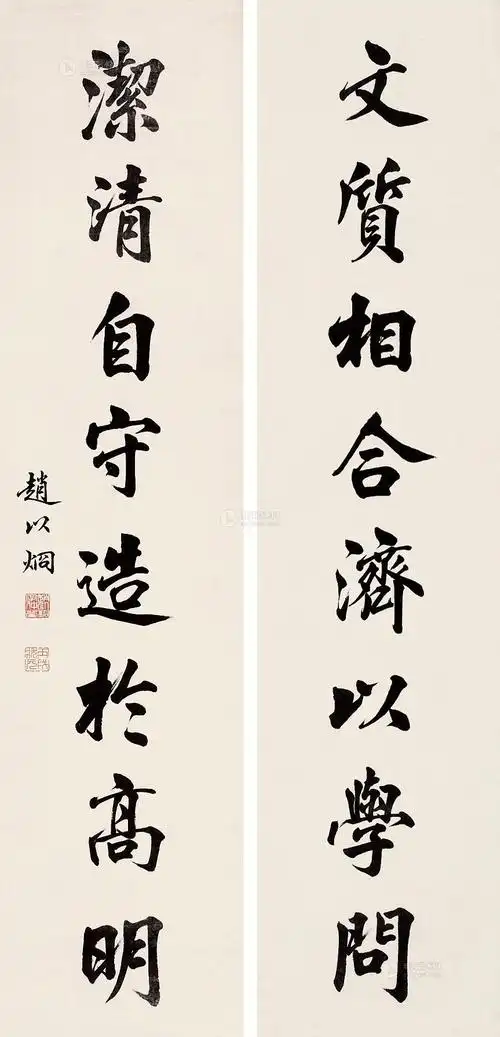 文質相合濟以學問
潔清自守造於高明
趙以炯